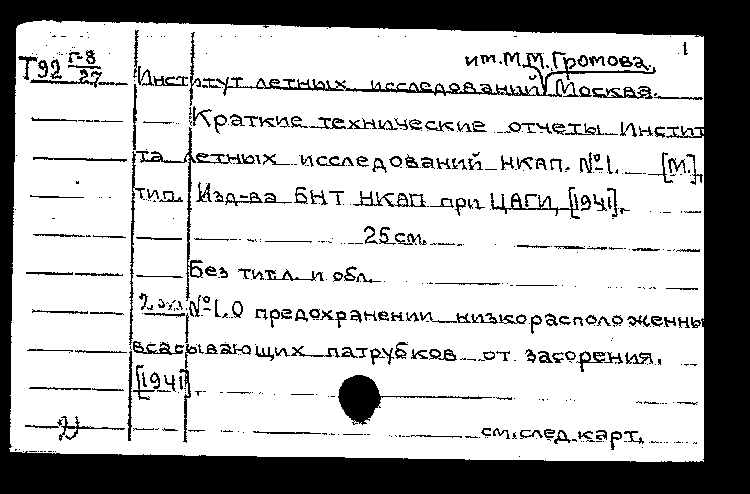 1
им. М.М. Громова.
Т92 Г-8/27 Институт летных исследований Москва.
Краткие технические отчеты Инстит
та летных исследований НКАП. №1. [М.],
тип. Изд-ва БНТ НКАП при ЦАГИ, [1941].
25 см.
Без тит. л. и обл.
2 экз. №1. О предохранении низкорасположенны
всасывающих патрубков от засорения.
[1941].
см. след. карт.